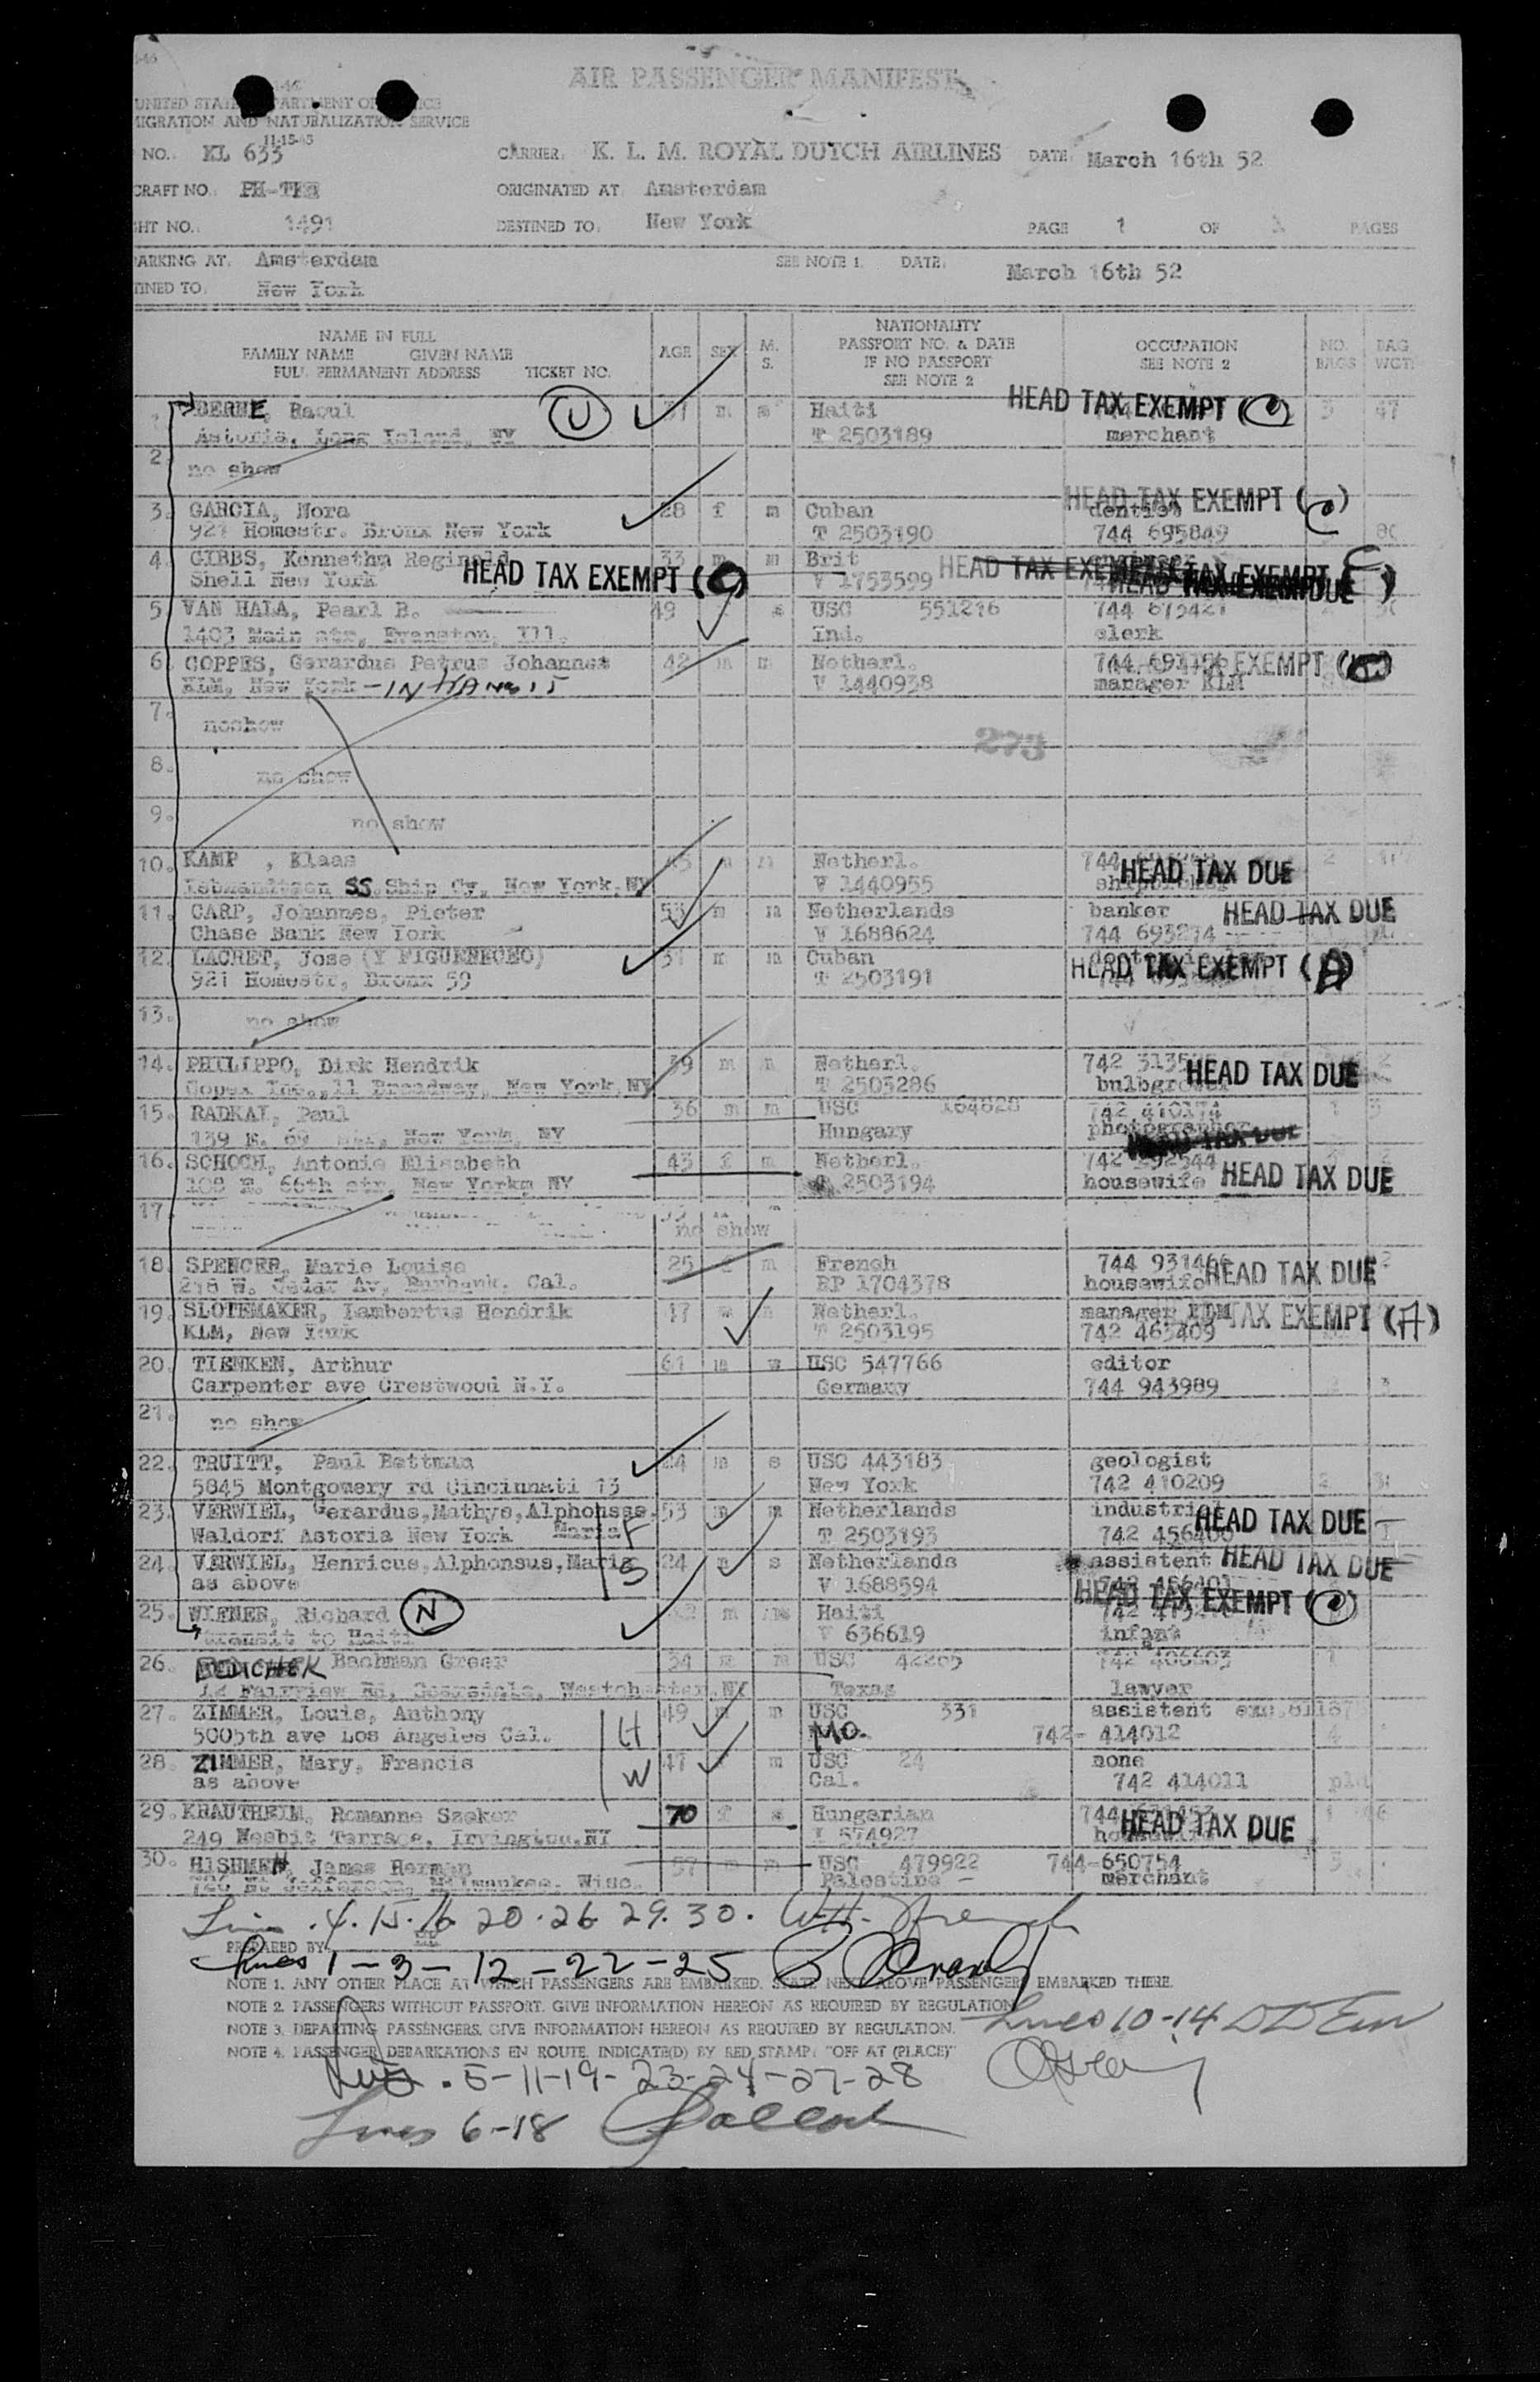 AIR PASSENGER MANIFEST
11-15-45
IGRATION AND NATURALIZATION SERVICE
NO. KL 633 CARRIER: K. L. M. ROYAL DUTCH AIRLINES DATE: March 16th 52
CRAFT NO. ORIGINATED AT: Amsterdam
HT NO. 1491 DESTINED TO: New York PAGE 1 OF PAGES
ARKING AT: Amsterdam SEE NOTE 1. DATE: March 16th 52
INED TO: New York
NAME IN FULL
FAMILY NAME GIVEN NAME
FULL PERMANENT ADDRESS TICKET NO.
AGE SEX M. S.
NATIONALITY
PASSPORT NO. & DATE
IF NO PASSPORT
SEE NOTE 2
OCCUPATION
SEE NOTE 2
NO. BAGS BAG WGT.
1. BERNE, Raoul U m Haiti HEAD TAX EXEMPT (C) 3 47
Astoria, Long Island, NY T 2503189 merchant
2. no show
3. GARCIA, Nora 28 f m Cuban dentist HEAD TAX EXEMPT (C)
921 Homestr. Bronx New York T 2503190 744 695849
4. GIBBS, Kennethm Reginald 33 m m Brit HEAD TAX EXEMPT
Shell New York HEAD TAX EXEMPT (C) V 1753599
5. VAN HALA, Pearl B. 49 USC 551216 744 675421
1403 Main str, Evanston, Ill. Ind. clerk
6. COPPES, Gerardus Petrus Johannes 42 m m Netherl. EXEMPT
KLM, New York - IN TRANSIT V 1440938 manager KLM
7. noshow
273
8. no show
9. no show
10. KAMP , Klaas 45 m m Netherl. HEAD TAX DUE
SS Ship Cy, New York.NY V 1440955
11. CARP, Johannes, Pieter 53 m m Netherlands banker HEAD TAX DUE
Chase Bank New York V 1688624 744 693274
12. LACRET, Jose (Y FIGUENECHO) 31 m m Cuban HEAD TAX EXEMPT (A)
921 Homestr, Bronx 59 T 2503191
13. no show
14. PHILIPPO, Dirk Hendrik 39 m m Netherl. HEAD TAX DUE
Gopex Inc.,11 Broadway, New York.NY T 2503286 bulbgrower
15. RADKAI, Paul 36 m m USC 164828 742 410174
139 E. 69 New York, NY Hungary photographer
16. SCHOCH, Antonie Elisabeth 43 f m Netherl. 742 292544
108 E. 66th str, New Yorkm NY 2503194 housewife HEAD TAX DUE
17. no show
18. SPENCER, Marie Louise 25 f m French 744 931466
218 W. Cedar Av, Burbank, Cal. EP 1704378 housewife HEAD TAX DUE
19. SLOTEMAKER, Lambertus Hendrik 47 m Netherl. manager KLM TAX EXEMPT (A)
KLM, New York T 2503195 742 465409
20. TIENKEN, Arthur 61 m w USC 547766 editor
Carpenter ave Crestwood N.Y. Germany 744 943989
21. no show
22. TRUITT, Paul Bettman 24 m s USC 443183 geologist
5845 Montgomery rd Cincinnati 13 New York 742 410209
23. VERWIEL, Gerardus,Mathys,Alphonsse, 53 m m Netherlands industrial HEAD TAX DUE
Waldorf Astoria New York Maria F T 2503193 742 456400
24. VERWIEL, Henricus,Alphonsus,Maria 24 m s Netherlands assistent HEAD TAX DUE
as above S V 1688594 742 456401
25. WIENER, Richard N m Haiti HEAD TAX EXEMPT (C)
transit to Haiti V 636619 infant
26. Bachman Greer 34 m m USC 42265 742 406603
12 Fairview Rd, Scarsdale, Westchester,NY Texas lawyer
27. ZIMMER, Louis, Anthony 49 m m USC 331 assistent
5005th ave Los Angeles Cal. H Mo. 742- 414012
28. ZIMMER, Mary, Francis 47 m USC 24 none
as above W Cal. 742 414011
29. KRAUTHEIM, Romanne Szekor 70 f s Hungarian HEAD TAX DUE
249 Nesbit Terrace, Irvington.NJ 574927
30. HISHMEH, James Herman 57 m m USC 479922 744-650754
Jefferson, Milwaukee, Wisc. Palestine - merchant
4. 15. 16 20. 26 29. 30.
PREPARED BY
Lines 1-3-12-22-25
NOTE 1. ANY OTHER PLACE AT WHICH PASSENGERS ARE EMBARKED. STATE NEXT ABOVE PASSENGERS EMBARKED THERE.
NOTE 2. PASSENGERS WITHOUT PASSPORT. GIVE INFORMATION HEREON AS REQUIRED BY REGULATION.
NOTE 3. DEPARTING PASSENGERS. GIVE INFORMATION HEREON AS REQUIRED BY REGULATION.
Lines 10-14
NOTE 4. PASSENGER DEBARKATIONS EN ROUTE. INDICATE(D) BY RED STAMP: "OFF AT (PLACE)"
5-11-19-23-24-27-28
Lines 6-18